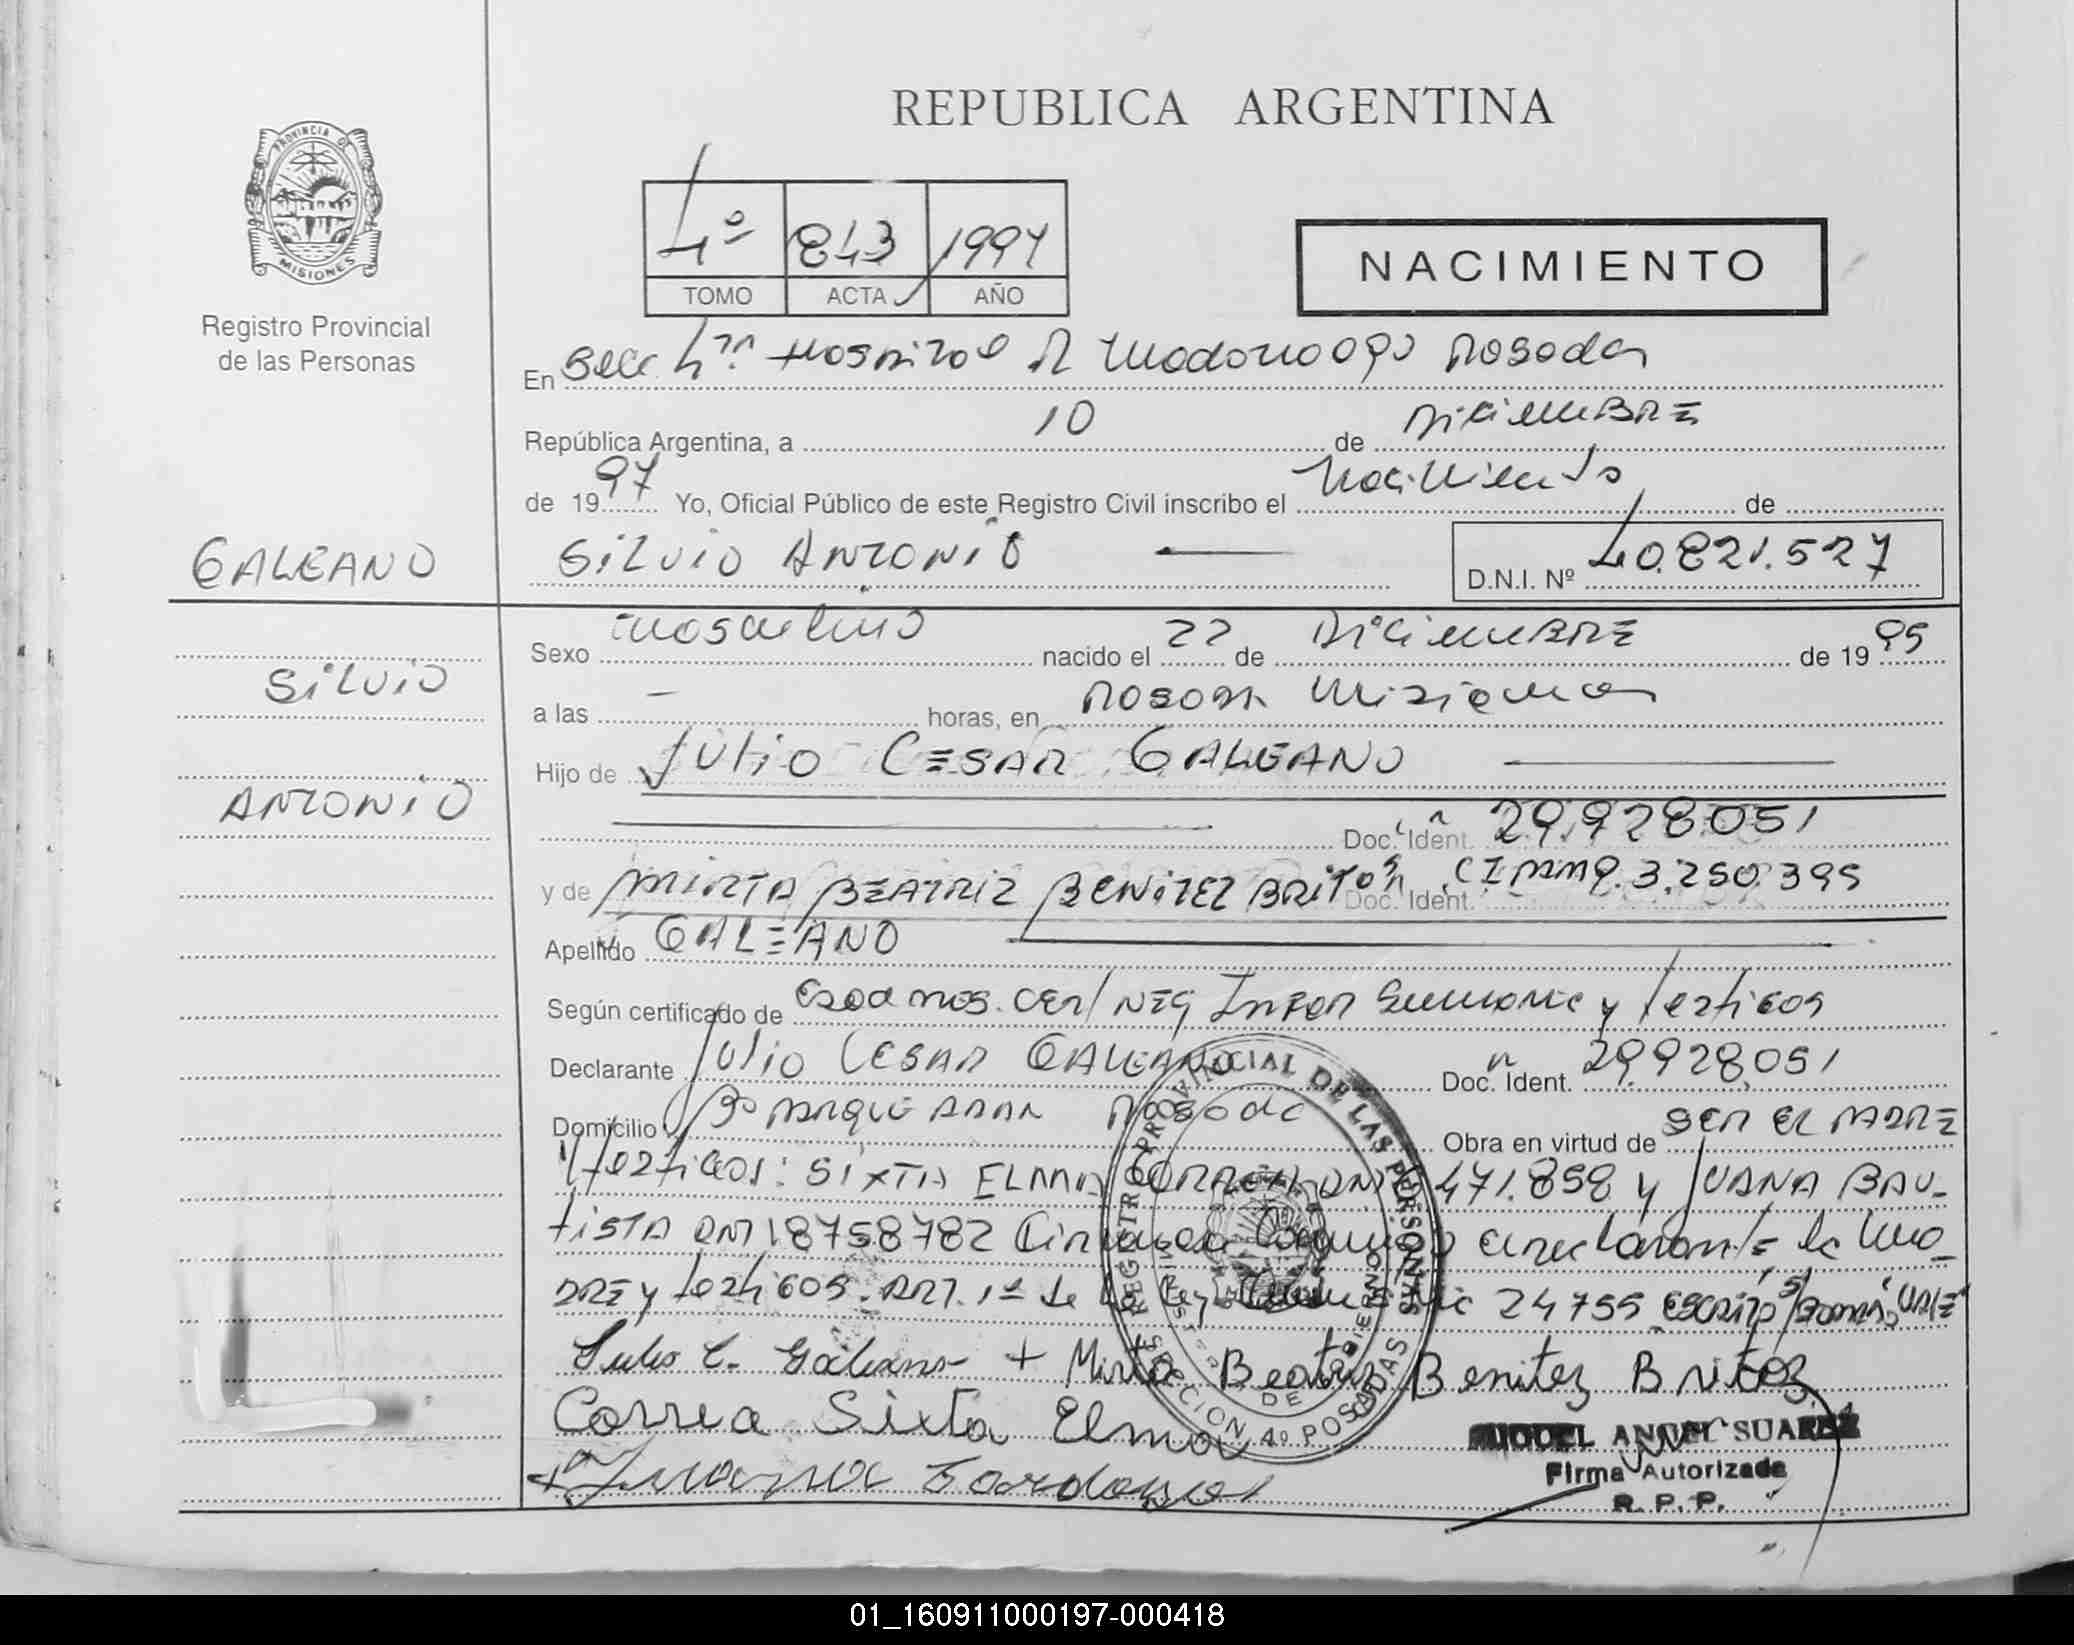 REPUBLICA ARGENTINA
PROVINCIA DE
MISIONES
Registro Provincial
de las Personas
4º 843 1997
TOMO ACTA AÑO
NACIMIENTO
En Secc 4ta Hospital R Madariaga Posadas
República Argentina, a 10 de Diciembre
de 1997 Yo, Oficial Público de este Registro Civil inscribo el Nacimiento de
GALEANO
SILVIO ANTONIO
D.N.I. Nº 40.821.527
SILVIO
ANTONIO
Sexo masculino nacido el 22 de Diciembre de 1995
a las - horas, en Posadas Misiones
Hijo de Julio CESAR GALEANO
Doc. Ident. 29.928.051
y de MIRTA BEATRIZ BENITEZ BRITOS Doc. Ident. CI 3.250.395
Apellido GALEANO
Según certificado de y testigos
Declarante Julio CESAR GALEANO Doc. Ident. 29.928.051
Domicilio Bº Posadas Obra en virtud de SER EL PADRE
testigos: SIXTA ELMA CORREA 471.858 y JUANA BAU-
TISTA DNI 18758782 la ma-
DRE y testigos. ART. 1º de la Ley 24755
Julio C. Galeano + Mirta Beatriz Benitez Britez
Correa Sixta Elma
Juana
REGISTRO PROVINCIAL DE LAS PERSONAS
SECCION 4º POSADAS
MIGUEL ANGEL SUAREZ
Firma Autorizada
R. P. P.
01_160911000197-000418